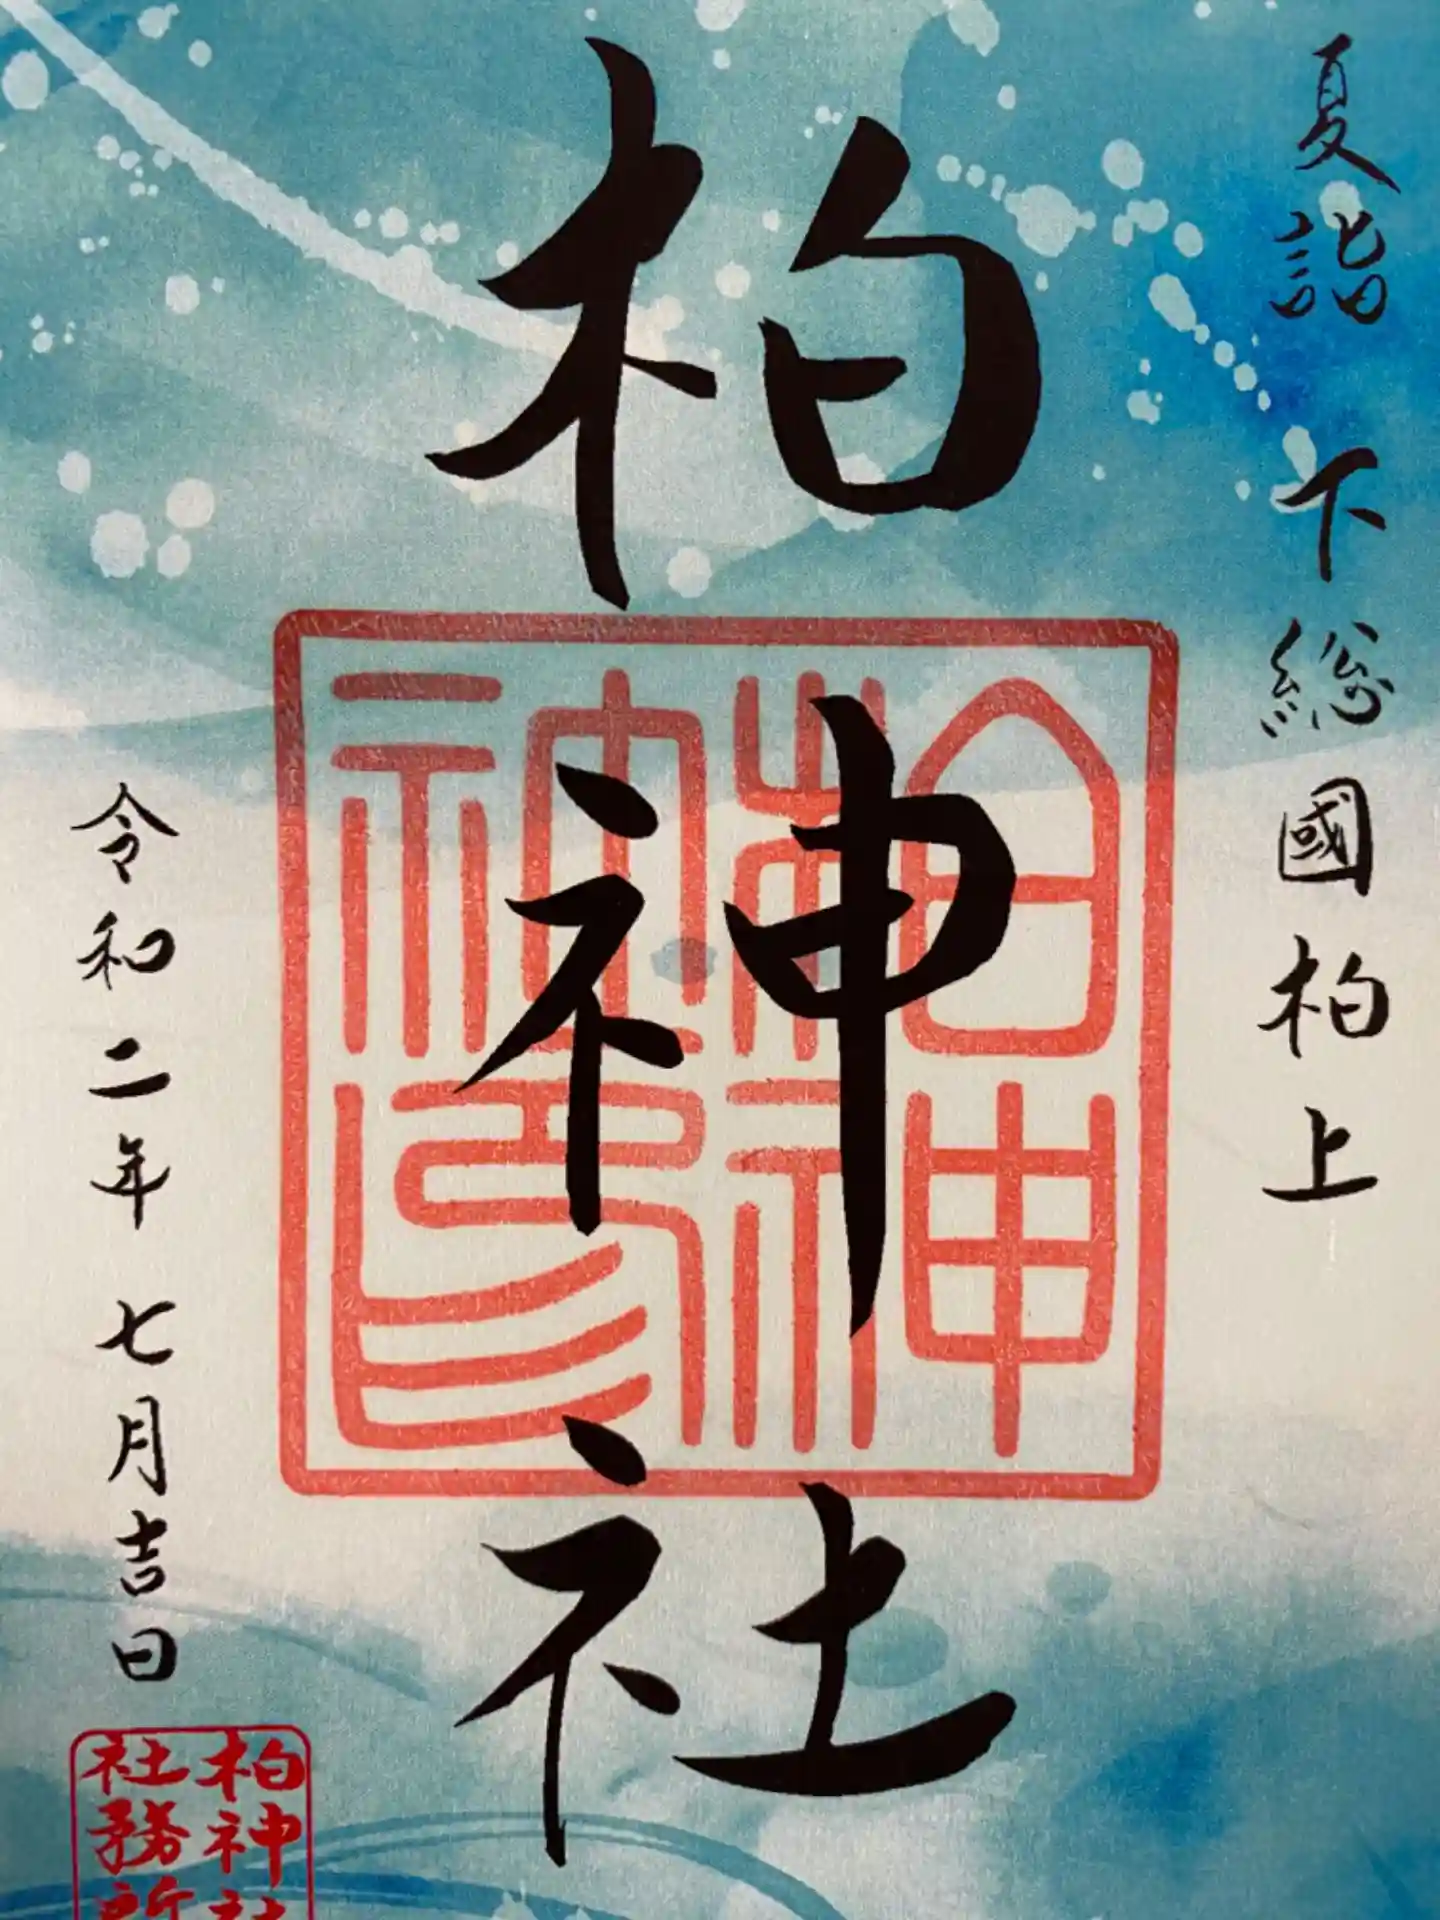 夏詣 下総國柏上
柏神社
柏神神印
令和二年 七月吉日
柏神社
社務所